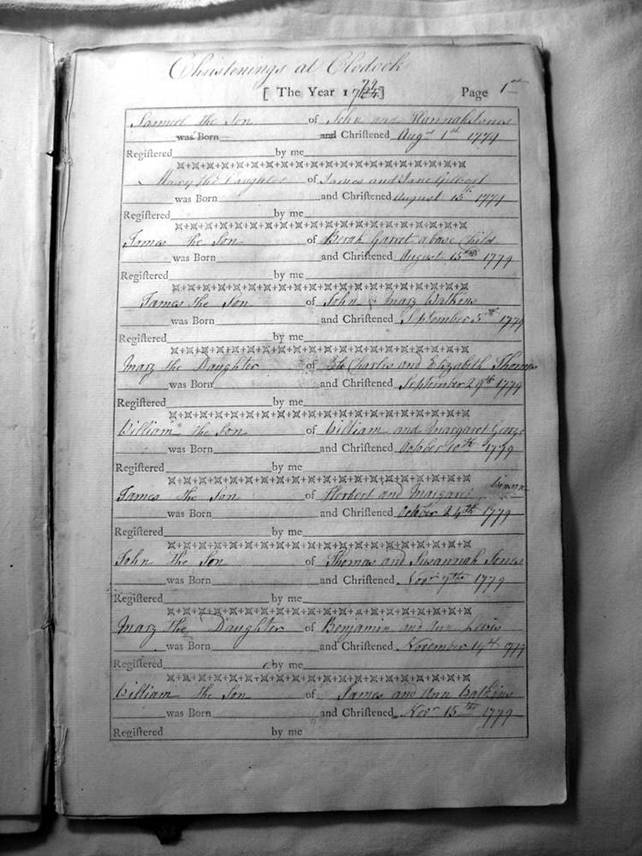 Christenings at Clodock
[ The Year 1779 ] Page 1st
Samuel the Son of John and Hannah James
was Born and Christened Augst 1st 1779
Registered by me
Mary the Daughter of James and Jane Gilbert
was Born and Christened August 15th 1779
Registered by me
James the Son of Garret a base Child
was Born and Christened August 15th 1779
Registered by me
James the Son of John & Mary Watkins
was Born and Christened September 5th 1779
Registered by me
Mary the Daughter of Charles and Elizabeth Thomas
was Born and Christened September 29th 1779
Registered by me
William the Son of William and Margaret George
was Born and Christened October 10th 1779
Registered by me
James the Son of Herbert and Margaret
was Born and Christened October 24th 1779
Registered by me
John the Son of Thomas and Susannah Jones
was Born and Christened Novr 7th 1779
Registered by me
Mary the Daughter of Benjamin and Ann Lewis
was Born and Christened November 14th 1779
Registered by me
William the Son of James and Ann Watkins
was Born and Christened Novr 15th 1779
Registered by me